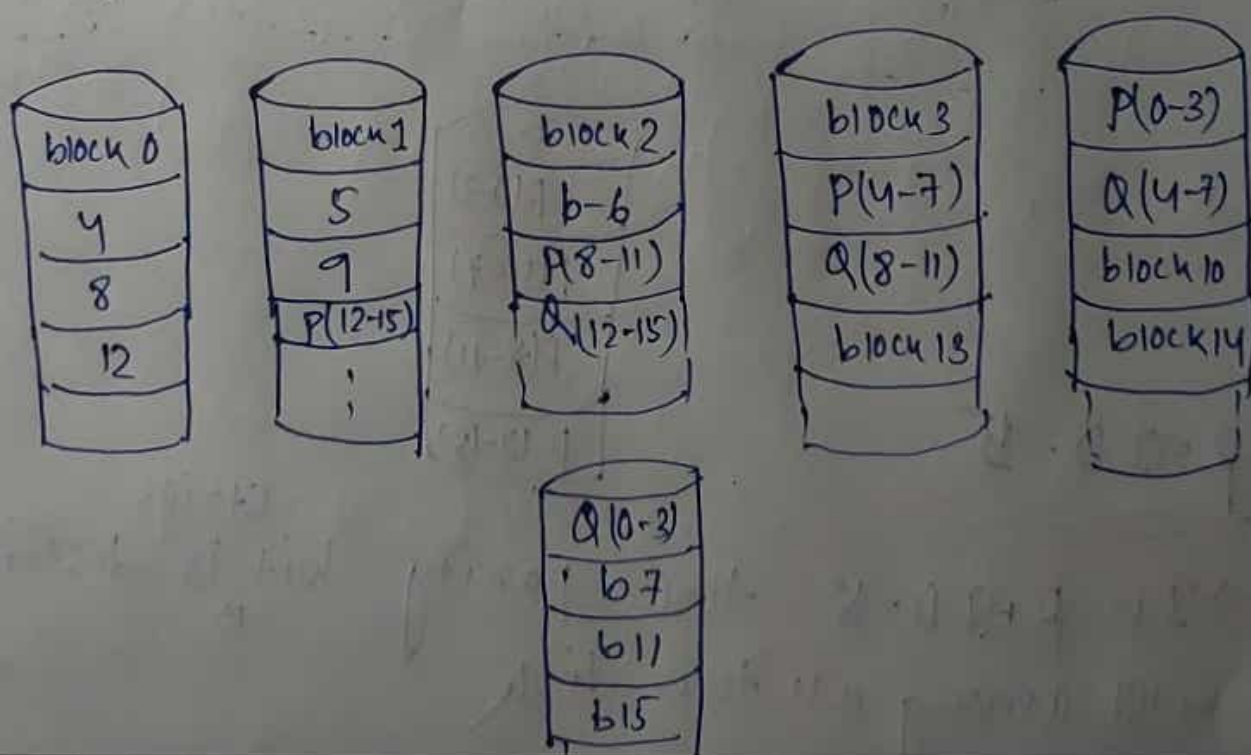 block 0
4
8
12
block 1
5
9
P(12-15)
block 2
b-6
P(8-11)
Q(12-15)
block 3
P(4-7)
Q(8-11)
block 13
P(0-3)
Q(4-7)
block 10
block 14
Q(0-3)
b7
b11
b15